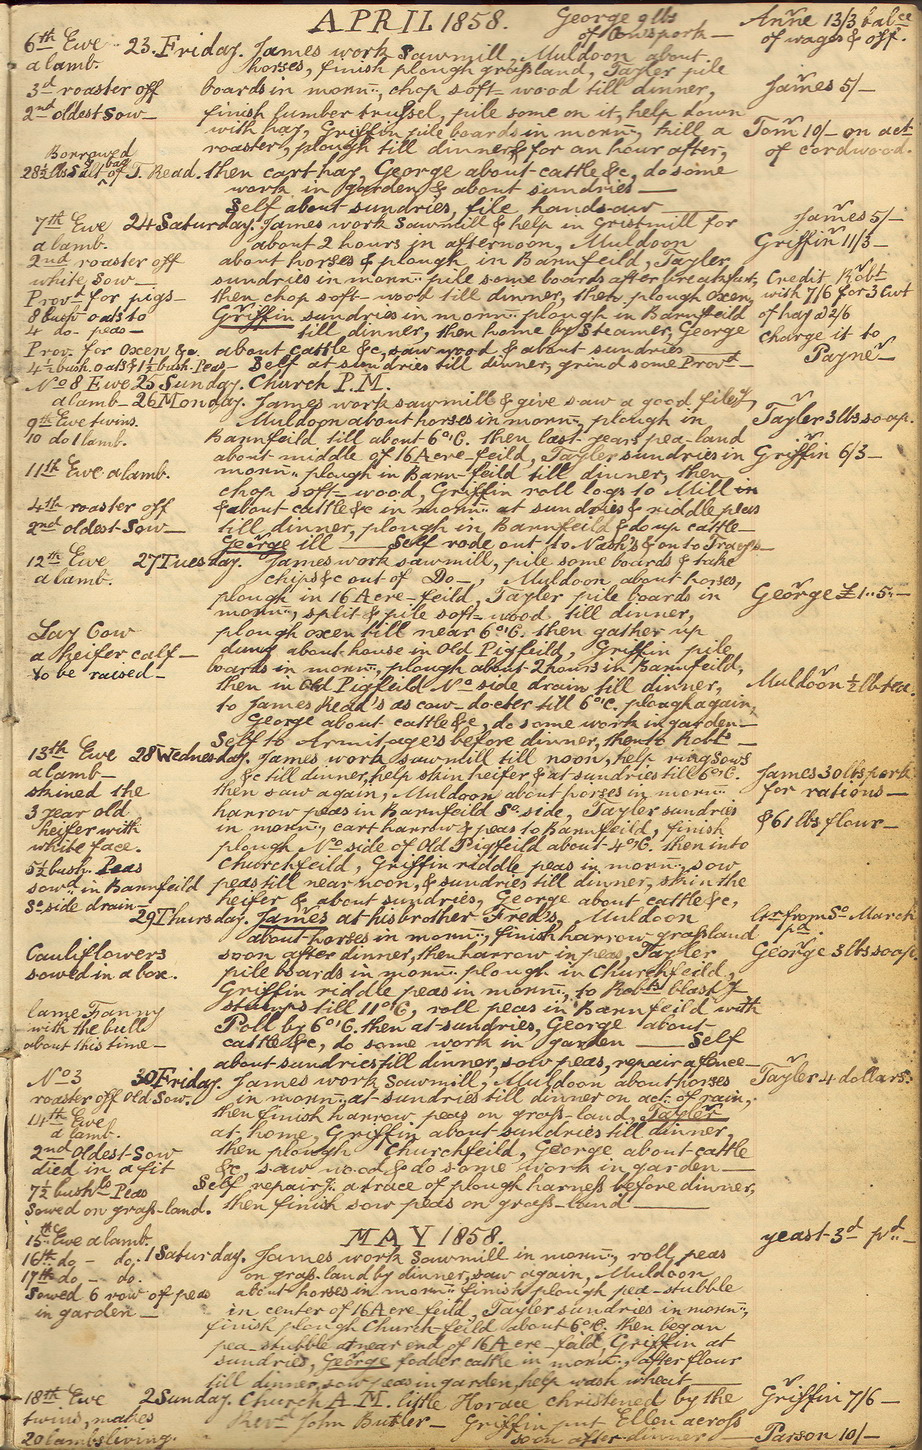 APRIL 1858.
George 9 lbs
of Cowspork —
Anne 13/3 balce
of wages & off.
6th Ewe
a lamb.
3d roaster off
2nd oldest Sow —
Borrowed
28½ lbs Salt & bag of T. Read.
23. Friday. James work Sawmill, Muldoon about
horses, finish plough grass land, Tayler pile
boards in mornng, chop soft-wood till dinner,
finish lumber trussel, pile some on it, help down
with hay, Griffin pile boards in mornng, kill a
roaster, plough till dinner & for an hour after,
then cart hay, George about cattle &c, do some
work in garden & about sundries —
Self about sundries, file handsaw —
James 5/-
Tom 10/- on act
of cordwood.
7th Ewe
a lamb.
2nd roaster off
white Sow —
Provr for pigs —
8 bush oats to
4 do- peas —
Prov. for Oxen &c.
4½ bush. oats & 1½ bush. Peas —
24 Saturday. James work Sawmill & help in Gristmill for
about 2 hours in afternoon, Muldoon
about horses & plough in Barnfeild, Tayler
sundries in mornng pile some boards after breakfast,
then chop soft-wood till dinner, then plough Oxen,
Griffin sundries in mornng plough in Barnfeild
till dinner, then home by Steamer, George
about Cattle &c, saw wood & about sundries
Self at sundries till dinner, grind some Provr —
James 5/-
Griffin 11/3 —
Credit Robt
with 7/6 for 3 Cwt
of hay @ 2/6
charge it to
Payne —
No 8 Ewe
a lamb —
25 Sunday. Church P.M.
9th Ewe twins.
10 do 1 lamb.
11th Ewe a lamb.
4th roaster off
2nd oldest Sow —
26 Monday. James work sawmill & give saw a good fileing,
Muldoon about horses in mornng, plough in
Barnfeild till about 6 o'C. then last years pea-land
about middle of 16 Acre-feild, Tayler sundries in
mornng plough in Barn-feild till dinner, then
chop soft-wood, Griffin roll logs to Mill in
& about cattle &c in mornng at sundries & riddle peas
till dinner, plough in Barnfeild & do up cattle —
George ill — Self rode out to Nash's & on to Tracy's —
Tayler 3 lbs soap.
Griffin 6/3 —
12th Ewe
a lamb.
Lay Cow
a heifer calf —
to be raised —
27 Tuesday. James work sawmill, pile some boards & take
chips &c out of Do —, Muldoon about horses,
plough in 16 Acre-feild, Tayler pile boards in
mornng, split & pile soft-wood till dinner,
plough oxen till near 6 o'C. then gather up
dung about house in Old Pigfeild, Griffin pile
boards in mornng, plough about 2 hours in Barnfeild,
then in Old Pigfeild No side drain till dinner,
to James Read's as cow-docter till 6 o'C. plough again,
George about cattle &c, do some work in garden —
Self to Armitage's before dinner, then to Robt's —
George £1..5.. —
Muldoon ½ lb tea.
13th Ewe
a lamb —
skined the
3 year old
heifer with
white face.
5½ bush. Peas
sowd in Barnfeild
So side drain —
28 Wednesday. James work sawmill till noon, help ring sows
&c till dinner, help skin heifer & at sundries till 6 o'C.
then saw again, Muldoon about horses in mornng
harrow peas in Barnfeild So side, Tayler sundries
in mornng, cart harrow & peas to Barnfeild, finish
plough No side of Old Pigfeild about 4 o'C. then into
Churchfeild, Griffin riddle peas in mornng, sow
peas till near noon, & sundries till dinner, skin the
heifer & about sundries, George about cattle &c,
James 30 lbs pork
for rations —
& 61 lbs flour —
Cauliflowers
sowed in a box.
lame Fanny
with the bull
about this time —
29 Thursday. James at his brother Fred's, Muldoon
about horses in mornng, finish harrow grass land
soon after dinner, then harrow in peas, Tayler
pile boards in mornng plough in Churchfeild,
Griffin riddle peas in mornng, to Robt's blast g
stumps till 11 o'C, roll peas in Barnfeild with
Poll by 6 o'C. then at sundries, George about
cattle &c, do some work in garden — Self
about sundries till dinner, sow peas, repair a fence —
ltr from So March
pd.
George 3 lbs soap.
No 3
roaster off Old Sow.
14th Ewe
a lamb.
2nd Oldest Sow
died in a fit
7½ bushls Peas
sowed on grass-land.
30 Friday. James work Sawmill, Muldoon about horses
in mornng at sundries till dinner on act. of rain,
then finish harrow peas on grass-land, Tayler
at home, Griffin about sundries till dinner,
then plough Churchfeild, George about cattle
&c saw wood & do some work in garden —
Self repairg. a trace of plough harness before dinner,
then finish sow peas on grass-land —
Tayler 4 dollars.
MAY 1858.
15th Ewe a lamb.
16th do — do.
17th do — do.
Sowed 6 row of peas
in garden —
1 Saturday. James work Sawmill in mornng, roll peas
on grass-land by dinner, saw again, Muldoon
about horses in mornng finish plough pea-stubble
in center of 16 Acre feild, Tayler sundries in mornng,
finish plough Church-feild about 6 o'C. then began
pea-stubble at near end of 16 Acre-feild, Griffin at
sundries, George fodder cattle in mornng, after flour
till dinner, sow peas in garden, help wash wheat —
yeast 3d pd. —
18th Ewe
twins, makes
20 lambs living.
2 Sunday. Church A.M. little Horace christened by the
Revd John Butler — Griffin put Ellen across
soon after dinner —
Griffin 7/6 —
Parson 10/-